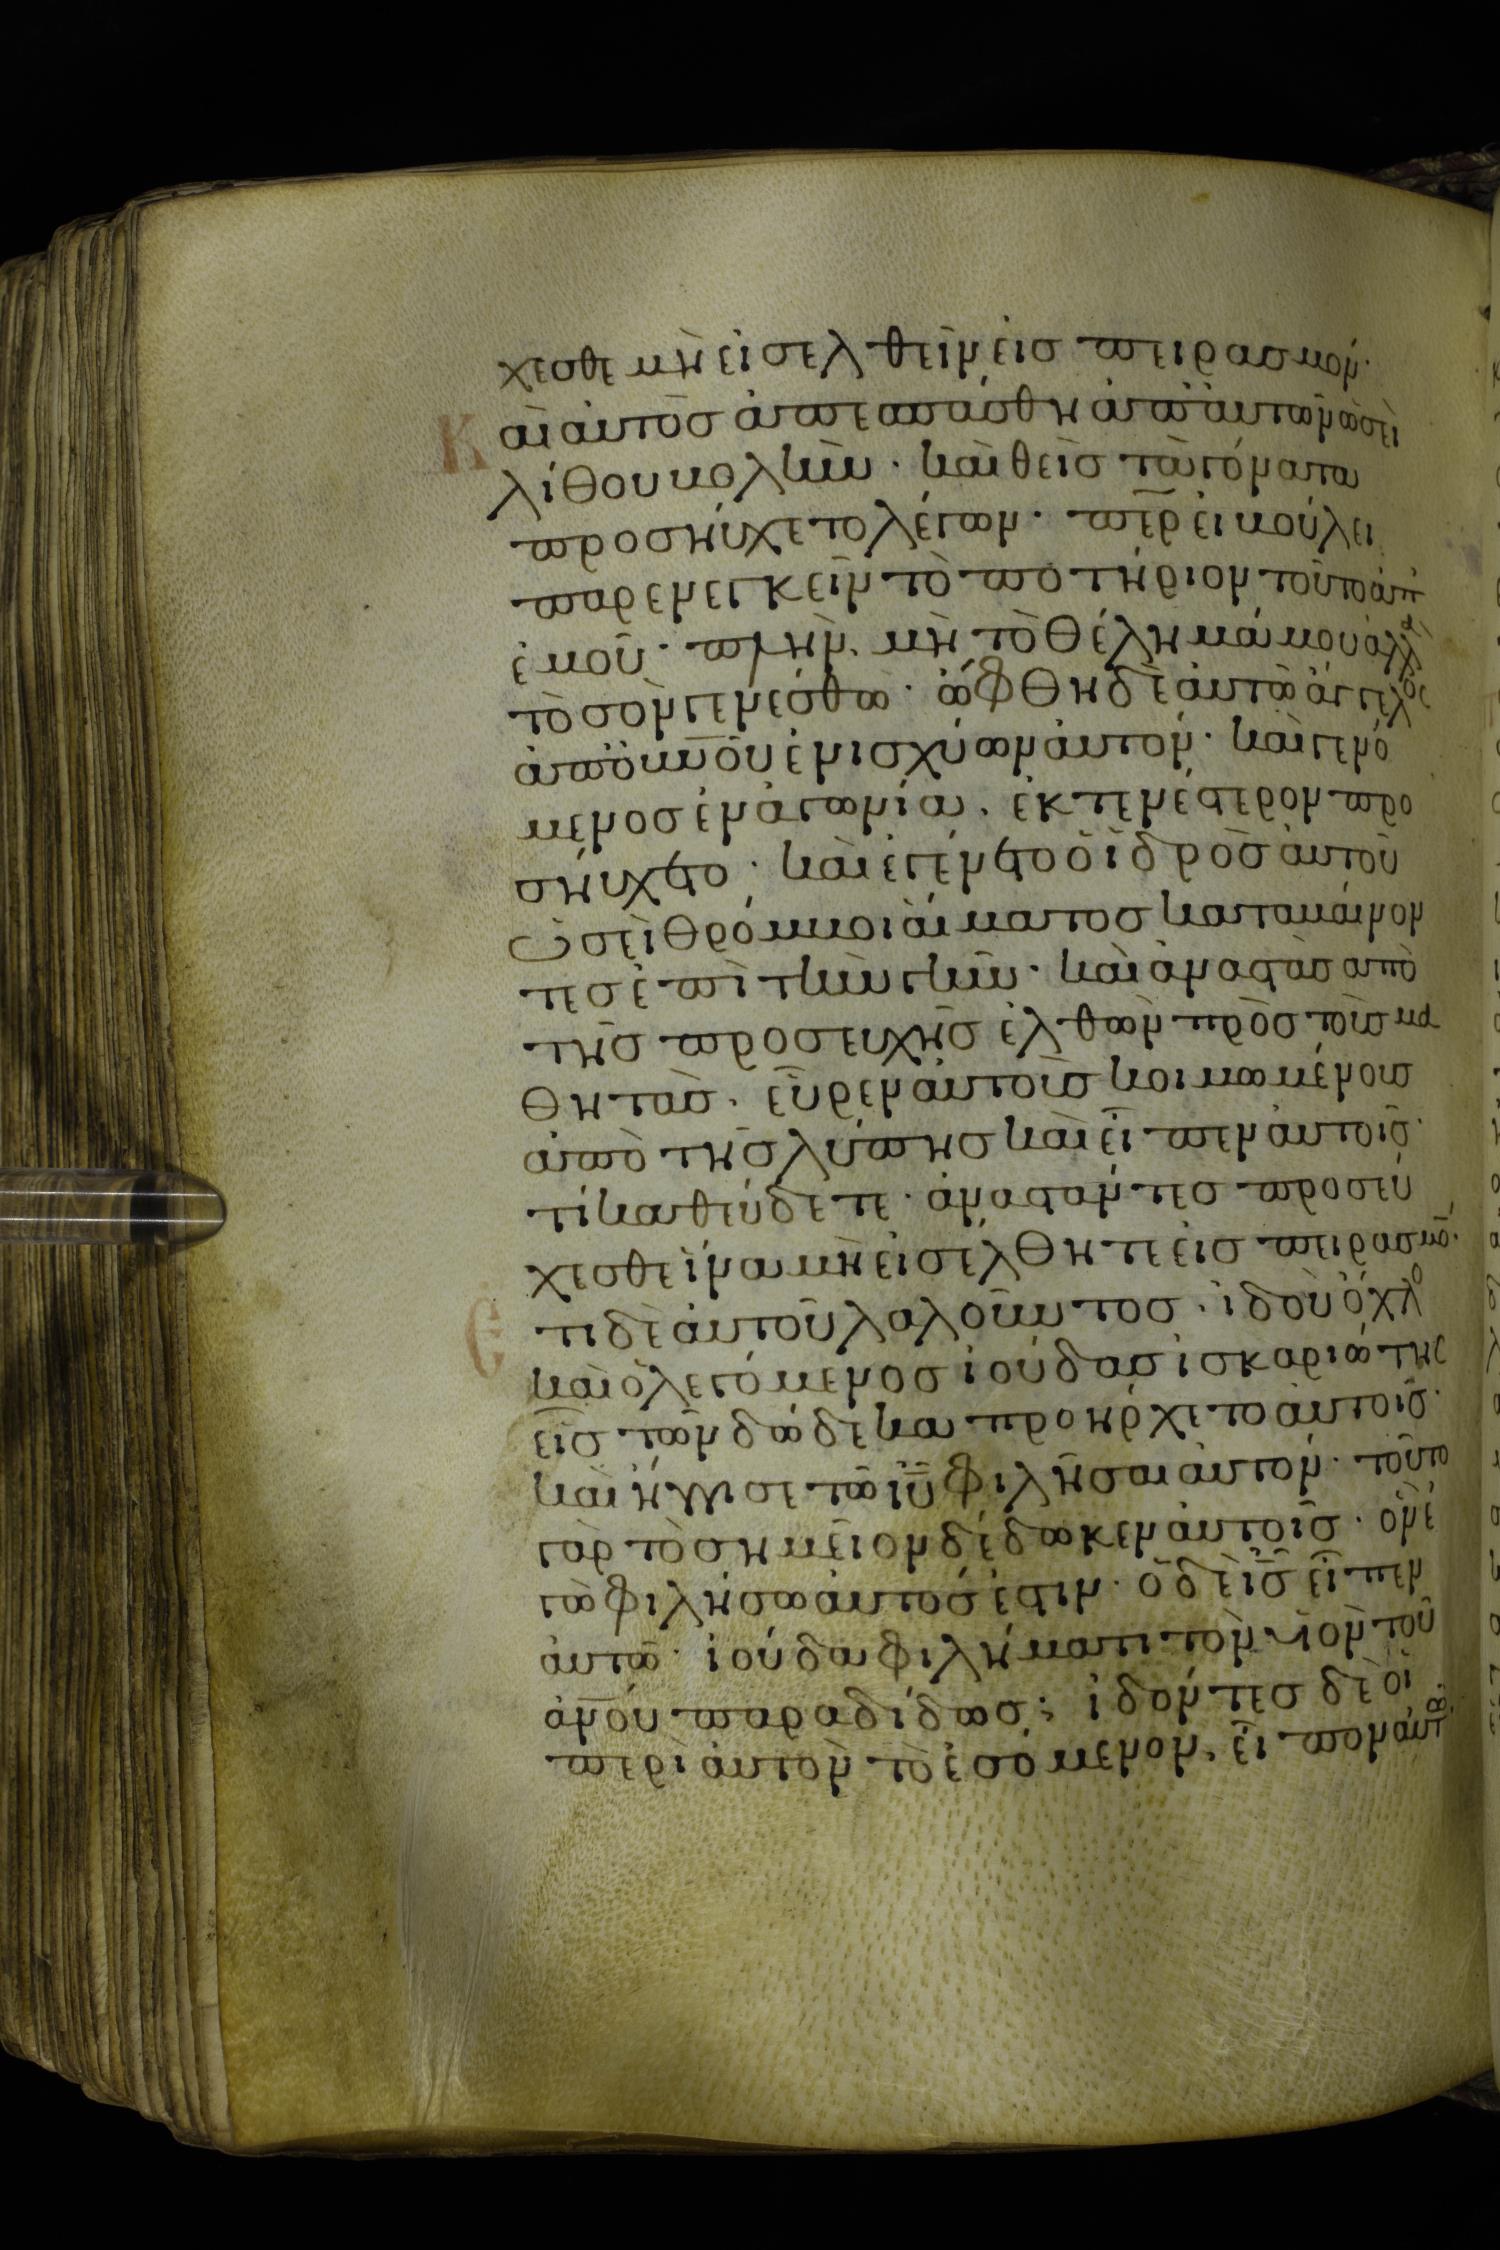 χεσθε μὴ εἰσελθεῖν εἰς πειρασμόν.
Καὶ αὐτὸς ἀπεσπάσθη ἀπ' αὐτῶν ὡσεὶ
λίθου βολὴν· καὶ θεὶς τὰ γόνατα
προσηύχετο λέγων· περ εἰ βούλει
παρενεγκεῖν τὸ ποτήριον τοῦτο ἀπ'
ἐμοῦ· πλὴν μὴ τὸ θέλημά μου ἀλλὰ
τὸ σὸν γενέσθω· ὤφθη δὲ αὐτῶ ἄγγελος
ἀπ' οὐνοῦ ἐνισχύων αὐτόν· καὶ γενό
μενος ἐν ἀγωνία, ἐκτενέστερον προ
σηύχετο· καὶ ἐγένετο ὁ ἱδρὼς αὐτοῦ
ὡσεὶ θρόμβοι αἵματος καταβαίνον
τες ἐπὶ τὴν γῆν· καὶ ἀναστὰς ἀπὸ
τῆς προσευχῆς ἐλθὼν πρὸς τοὺς μα
θητὰς· εὗρεν αὐτοὺς κοιμωμένους
ἀπὸ τῆς λύπης καὶ εἶπεν αὐτοῖς·
τί καθεύδετε· ἀναστάντες προσεύ
χεσθε ἵνα μὴ εἰσέλθητε εἰς πειρασμόν.
Ἔτι δὲ αὐτοῦ λαλοῦντος· ἰδοὺ ὄχλος
καὶ ὁ λεγόμενος ἰούδας ἰσκαριώτης
εἷς τῶν δώδεκα προήρχετο αὐτοῖς·
καὶ ἤγγισε τῶ ιυ φιλῆσαι αὐτόν· τοῦτο
γὰρ τὸ σημεῖον δέδωκεν αὐτοῖς· ὃν
ἂν φιλήσω αὐτός ἐστιν· ὁ δὲ ις εἶπεν
αὐτῶ· ἰούδα φιλήματι τὸν υν τοῦ
ανου παραδίδως; ἰδόντες δὲ οἱ
περὶ αὐτὸν τὸ ἐσόμενον, εἶπον αὐτῶ·